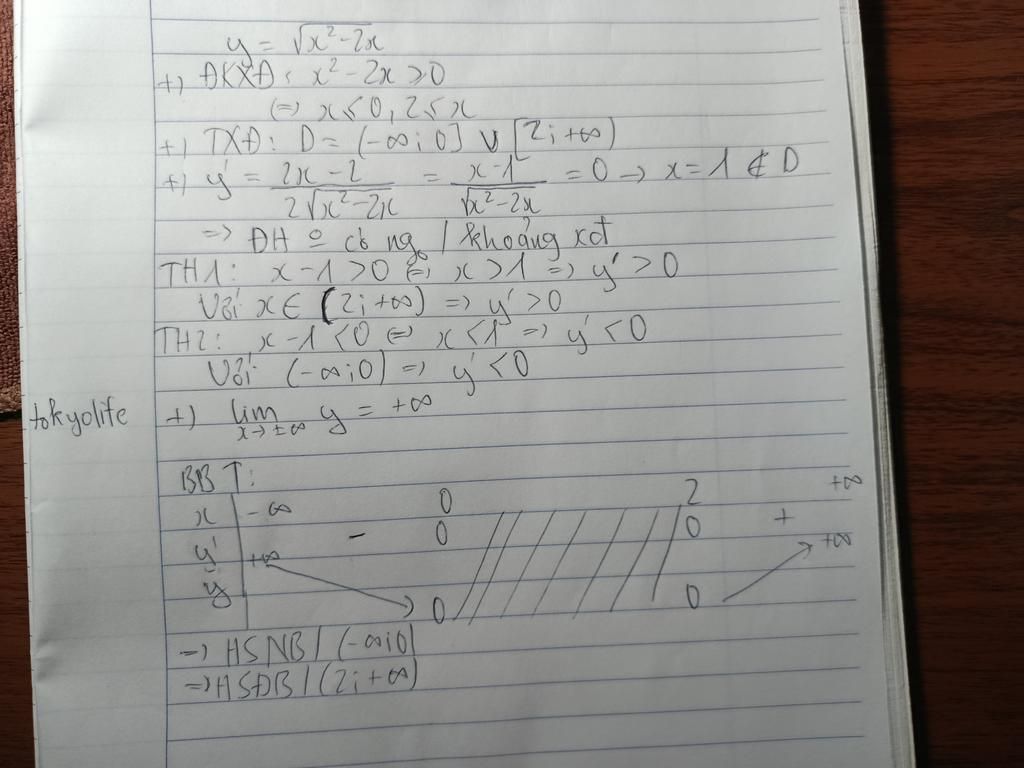 y = √x²-2x
+) ĐKXĐ: x² - 2x ≥ 0
⇔ x ≤ 0, 2 ≤ x
+) TXĐ: D = (-∞; 0] ∪ [2; +∞)
+) y' = (2x - 2)/(2√x²-2x) = (x-1)/(√x²-2x) = 0 → x = 1 ∉ D
=> ĐH o có ng / khoảng xđ
TH1: x - 1 > 0 ⇔ x > 1 => y' > 0
Với x ∈ (2; +∞) => y' > 0
TH2: x - 1 < 0 ⇔ x < 1 => y' < 0
Với (-∞; 0) => y' < 0
tokyolife +) lim x→±∞ y = +∞
BBT:
x -∞ 0 2 +∞
y' - 0 0 +
y +∞ 0 0 +∞
=> HSNB / (-∞; 0)
=> HSĐB / (2; +∞)